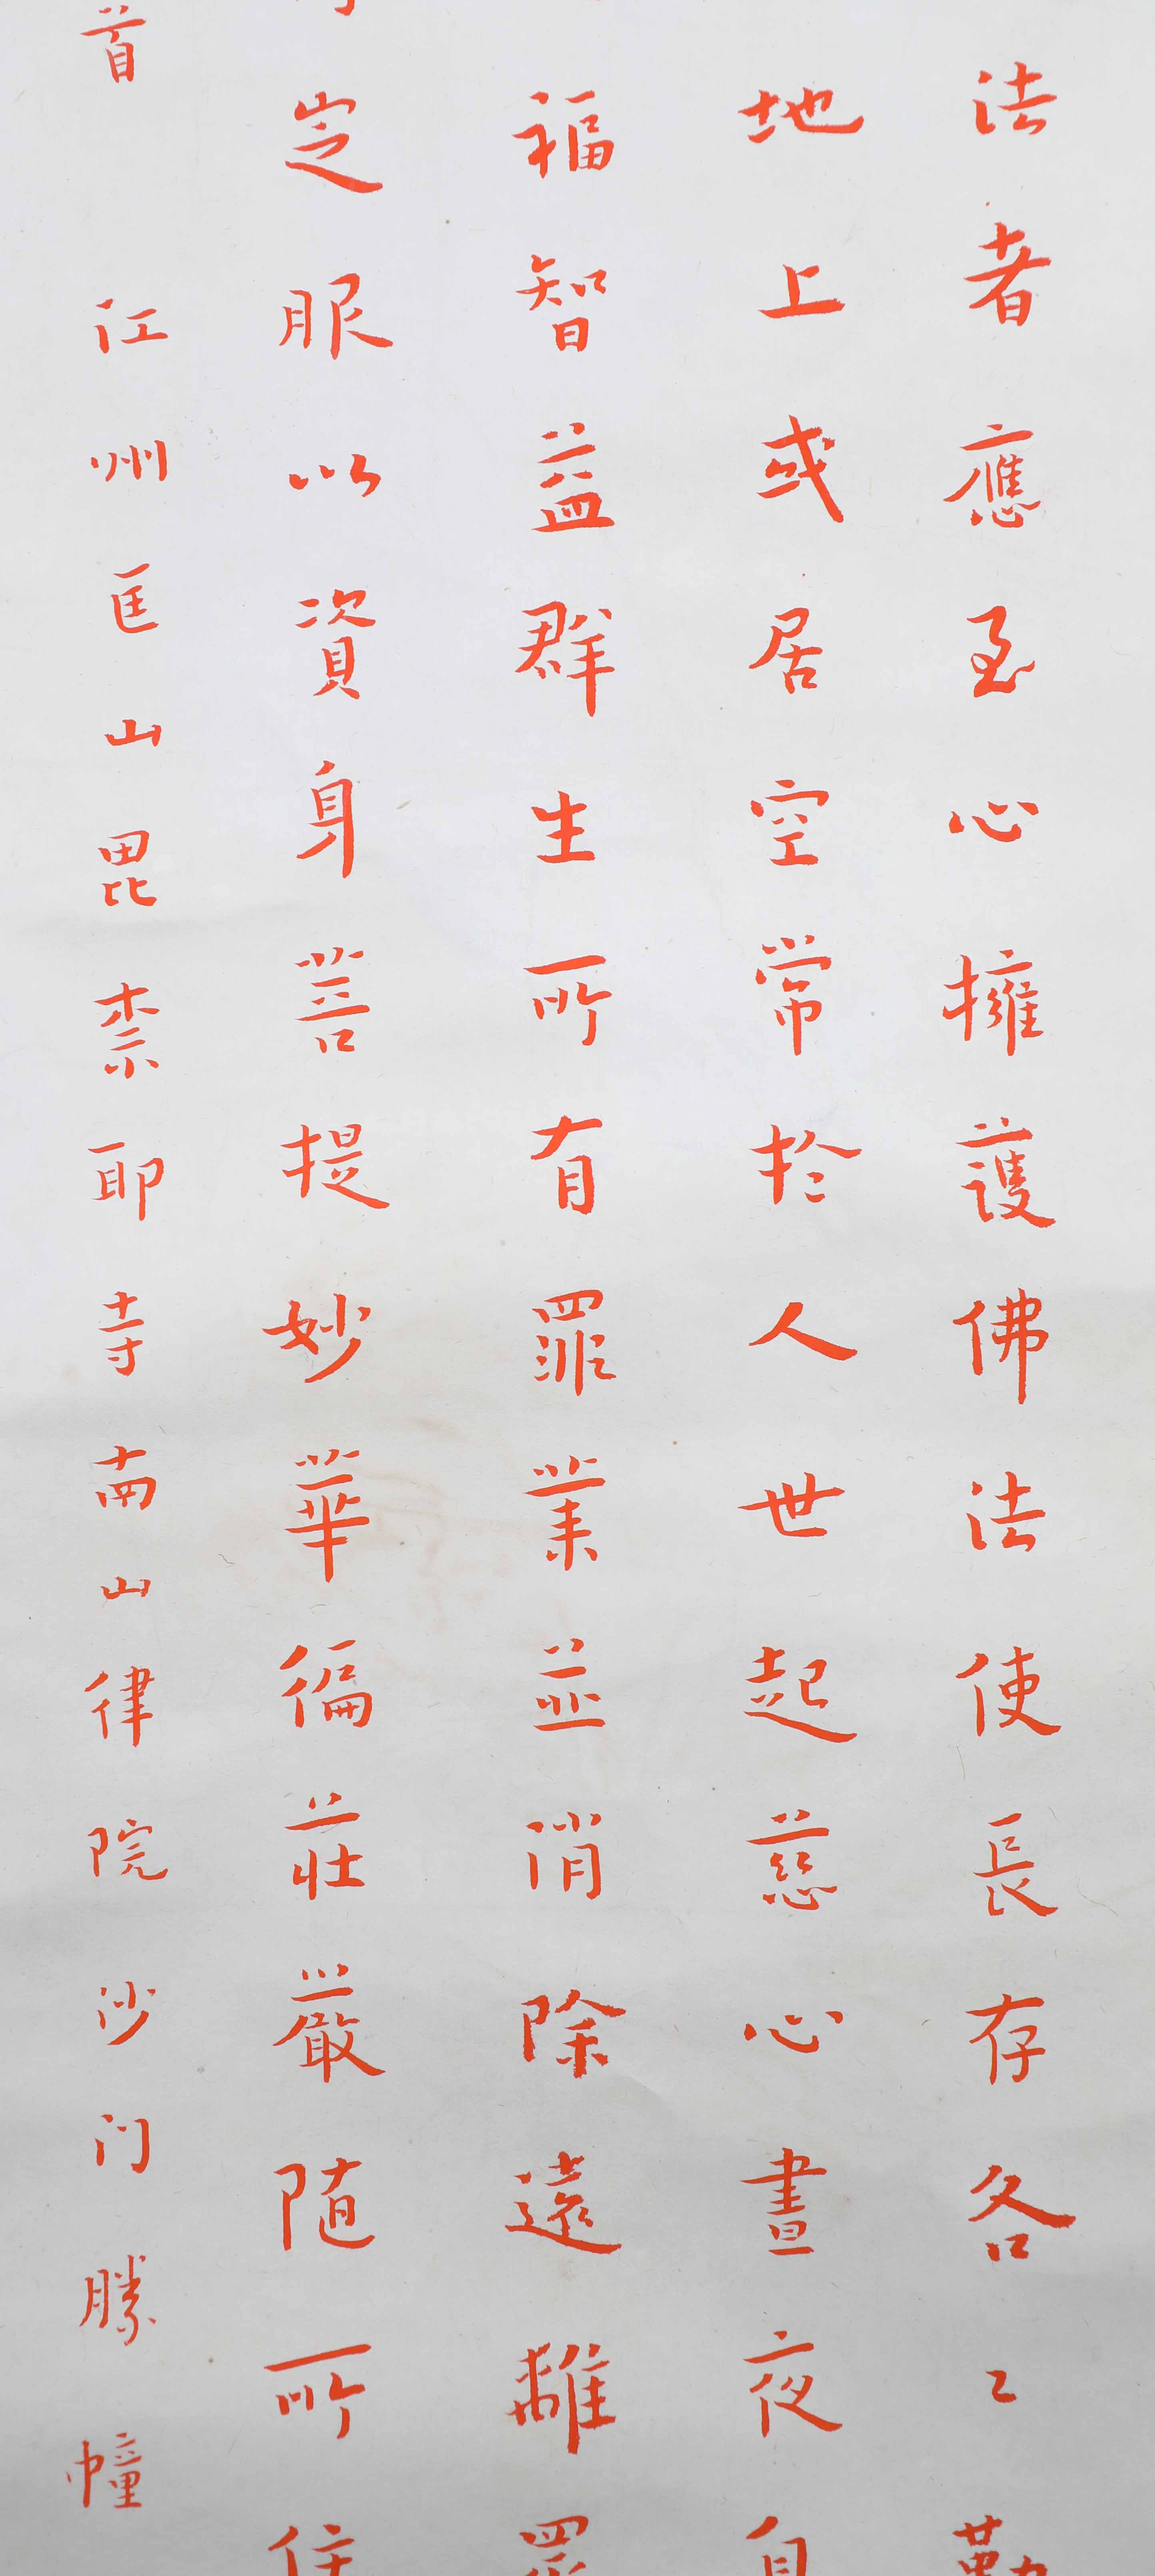 法者應至心擁護佛法使長存各々勤
地上或居空常於人世起慈心晝夜自
福智益群生所有罪業並消除遠離眾
定服以資身菩提妙華徧莊嚴隨所住
首 江州匡山毘柰耶寺南山律院沙门勝幢